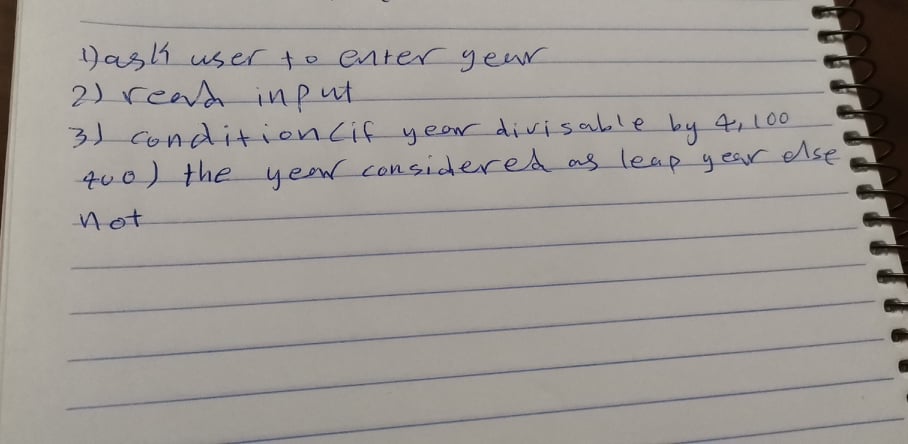 1) ask user to enter year
2) read input
3) condition (if year divisable by 4, 100
400) the year considered as leap year else
not